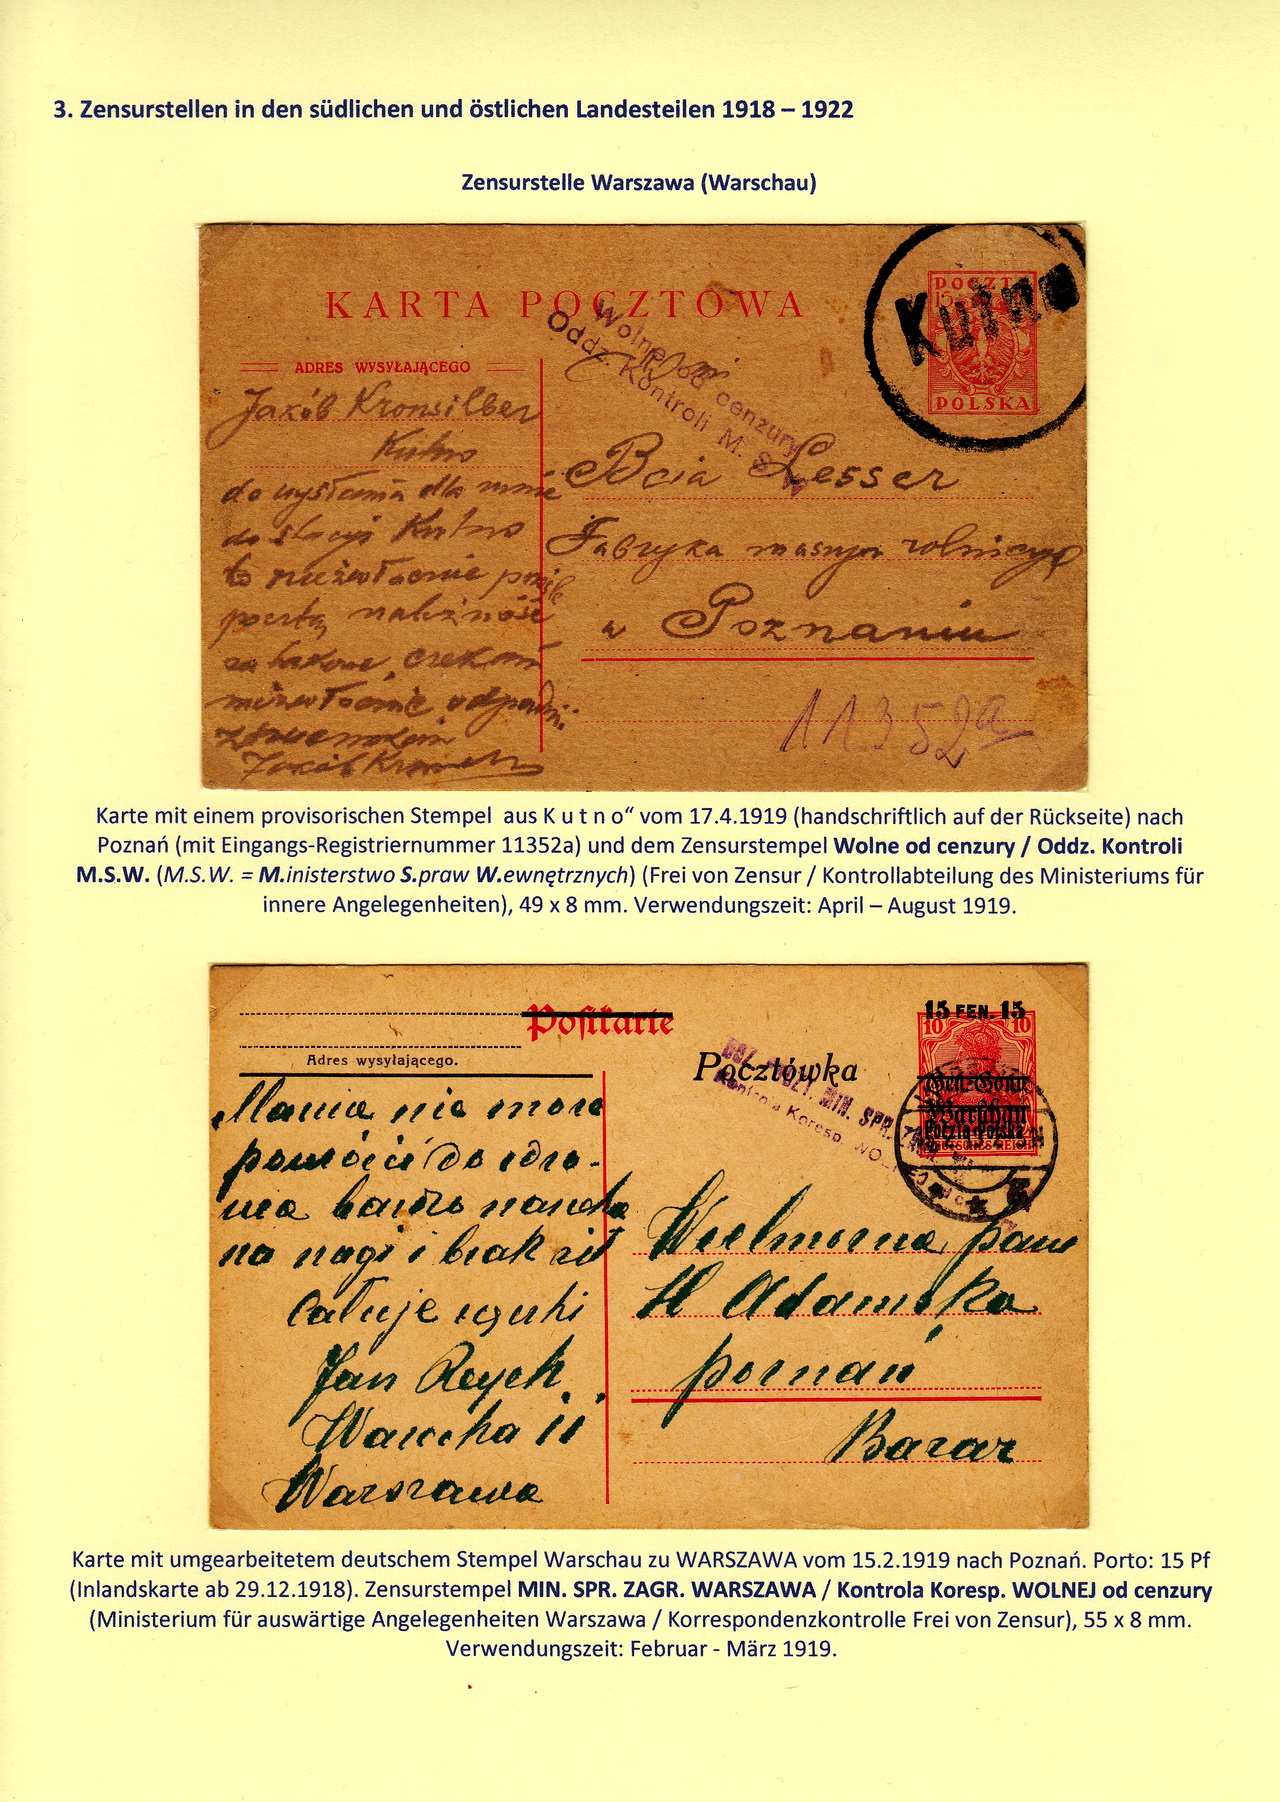 3. Zensurstellen in den südlichen und östlichen Landesteilen 1918 – 1922
Zensurstelle Warszawa (Warschau)
KARTA POCZTOWA
POCZTA
15
POLSKA
Kutno
Wolne od cenzury
Oddz. Kontroli M. S. W.
ADRES WYSYŁAJĄCEGO
Jakób Kronsilber
Kutno
do wysłania dla mnie
do stacyi Kutno
to niezwłocznie
pocztą należność
Jakób
Bcia Lesser
Fabryka maszyn rolniczych
w Poznaniu
11352a
Karte mit einem provisorischen Stempel aus K u t n o“ vom 17.4.1919 (handschriftlich auf der Rückseite) nach
Poznań (mit Eingangs-Registriernummer 11352a) und dem Zensurstempel Wolne od cenzury / Oddz. Kontroli
M.S.W. (M.S.W. = M.inisterstwo S.praw W.ewnętrznych) (Frei von Zensur / Kontrollabteilung des Ministeriums für
innere Angelegenheiten), 49 x 8 mm. Verwendungszeit: April – August 1919.
Postkarte
Adres wysyłającego.
Pocztówka
15 FEN. 15
10 10
Gen.-Gouv.
Warschau
Poczta Polska
MIN. SPR.
Kontrola Koresp. WOL
Mama nie może
powrócić do zdro-
wia bardzo
na nogi i brak sił
całuje rączki
Jan Reych
Warecka 11
Warszawa
Wielmożna pani
H Adamska
poznań
Bazar
Karte mit umgearbeitetem deutschem Stempel Warschau zu WARSZAWA vom 15.2.1919 nach Poznań. Porto: 15 Pf
(Inlandskarte ab 29.12.1918). Zensurstempel MIN. SPR. ZAGR. WARSZAWA / Kontrola Koresp. WOLNEJ od cenzury
(Ministerium für auswärtige Angelegenheiten Warszawa / Korrespondenzkontrolle Frei von Zensur), 55 x 8 mm.
Verwendungszeit: Februar - März 1919.